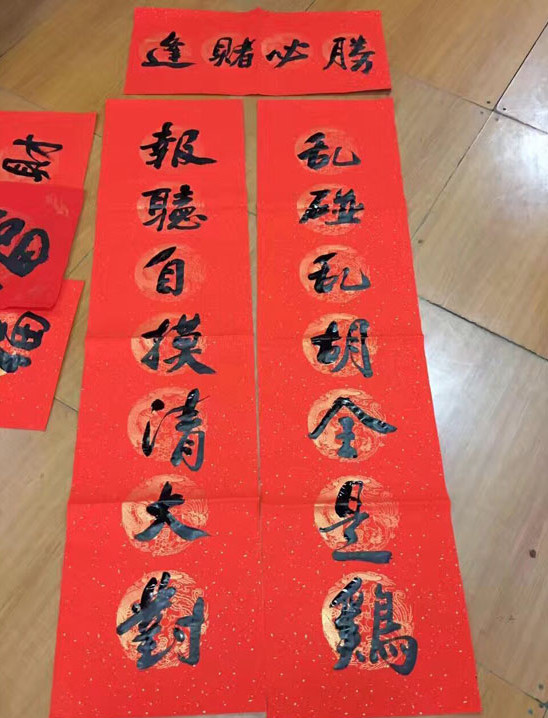 逢賭必勝
報聽自摸清大對
乱碰乱胡全是鷄
財